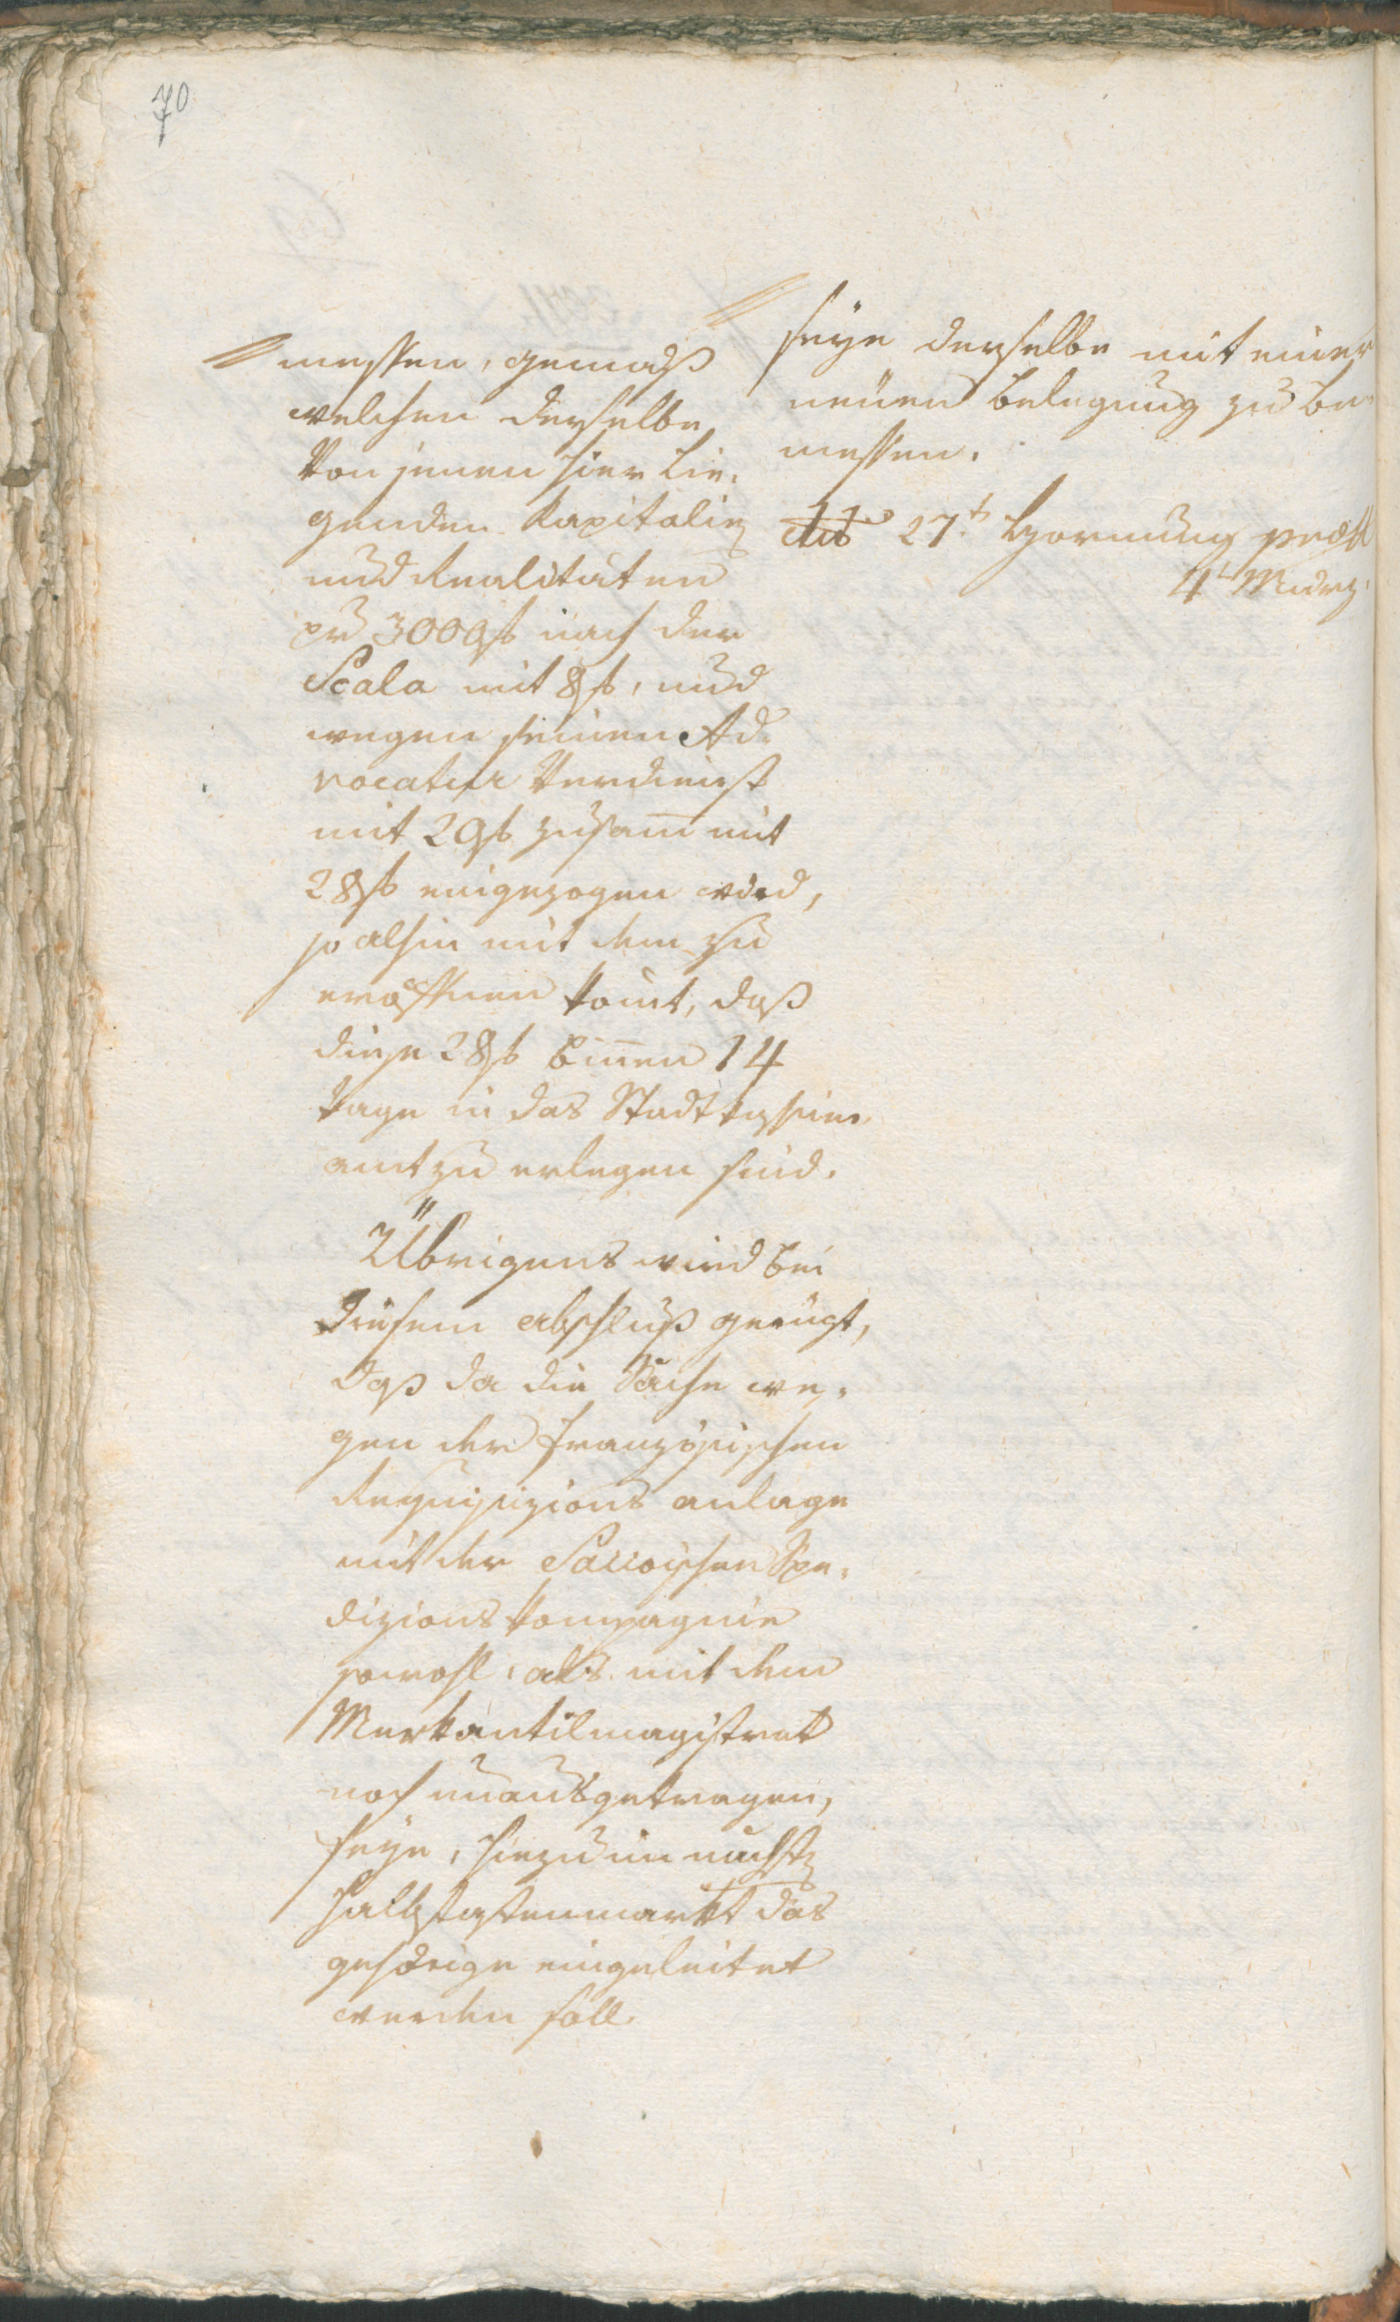 70
messen, gemäß
welchen derselbe
von jenen hier lie¬
genden Kapitalien
und Realitäten
pr 3000 f nach der
Scala mit 8 f, und
wegen seinen Ad¬
vocatur Verdienst
mit 20 f zusam̄ mit
28 f eingezogen wird,
so alhin mit dem zu
eröffnen kömt, daß
diese 28 f biñen 14
tage in das Stadtkassier
amt zu erlegen sind.
Übrigens wird bei
diesem abschluß gerügt,
daß da die Sache we¬
gen der französischen
Requisizions anlage
mit der Savoischen Spe¬
dizions kompagnie
sowohl, als mit dem
Merkantilmagistrat
noch unausgetragen,
seye, hiezu im nächsten
Halbfastenmarkt das
gehörige eingeleitet
werden soll.
seye derselbe mit einer
neuen belegung zu be¬
messen.
27t Hornung
4t März.